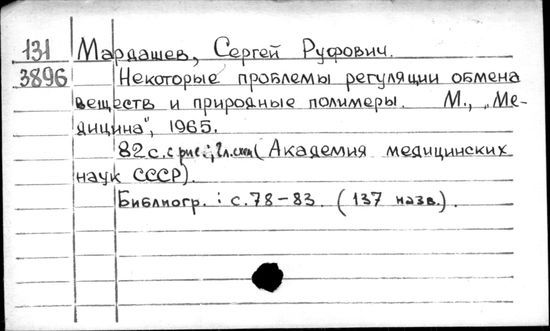 131 Мардашев, Сергей Руфович.
3896 Некоторые проблемы регуляции обмена
веществ и природные полимеры. М., „Ме-
дицина", 1965.
82 с. с рис.; 1 л. схем (Академия медицинских
наук СССР).
Библиогр.: с. 78-83. (137 назв.).